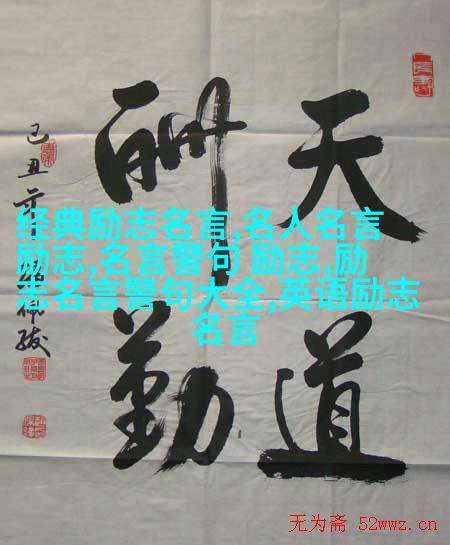 天道
酬勤
己丑
经典励志名言,名人名言
励志,名言警句 励志,励
志名言警句大全,英语励志
名言
无为斋 52wwz.cn